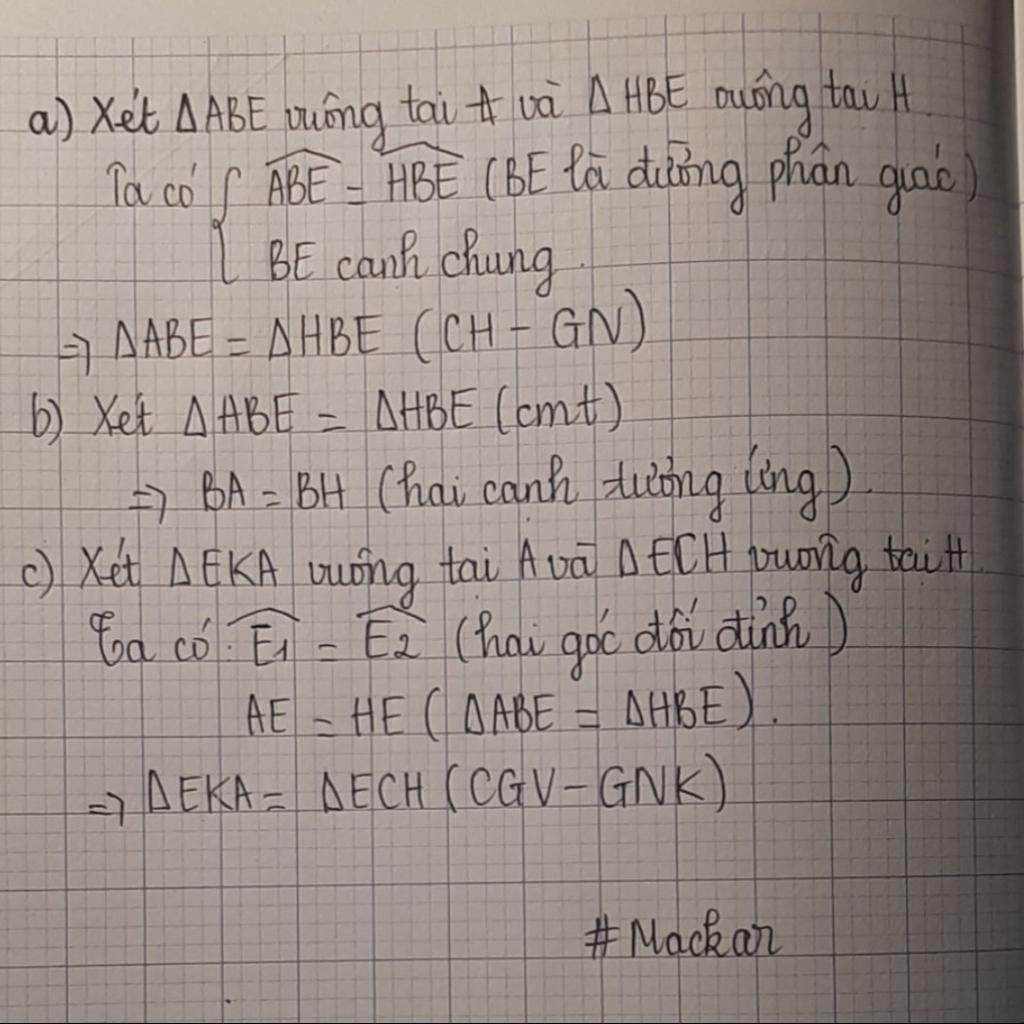 a) Xét ΔABE vuông tại A và ΔHBE vuông tại H.
Ta có { \widehat{ABE} = \widehat{HBE} (BE là đường phân giác)
BE cạnh chung.
=> ΔABE = ΔHBE (CH - GN)
b) Xét ΔABE = ΔHBE (cmt)
=> BA = BH (hai cạnh tương ứng).
c) Xét ΔEKA vuông tại A và ΔECH vuông tại H.
Ta có: \widehat{E1} = \widehat{E2} (hai góc đối đỉnh)
AE = HE (ΔABE = ΔHBE).
=> ΔEKA = ΔECH (CGV - GNK)
#Mackar